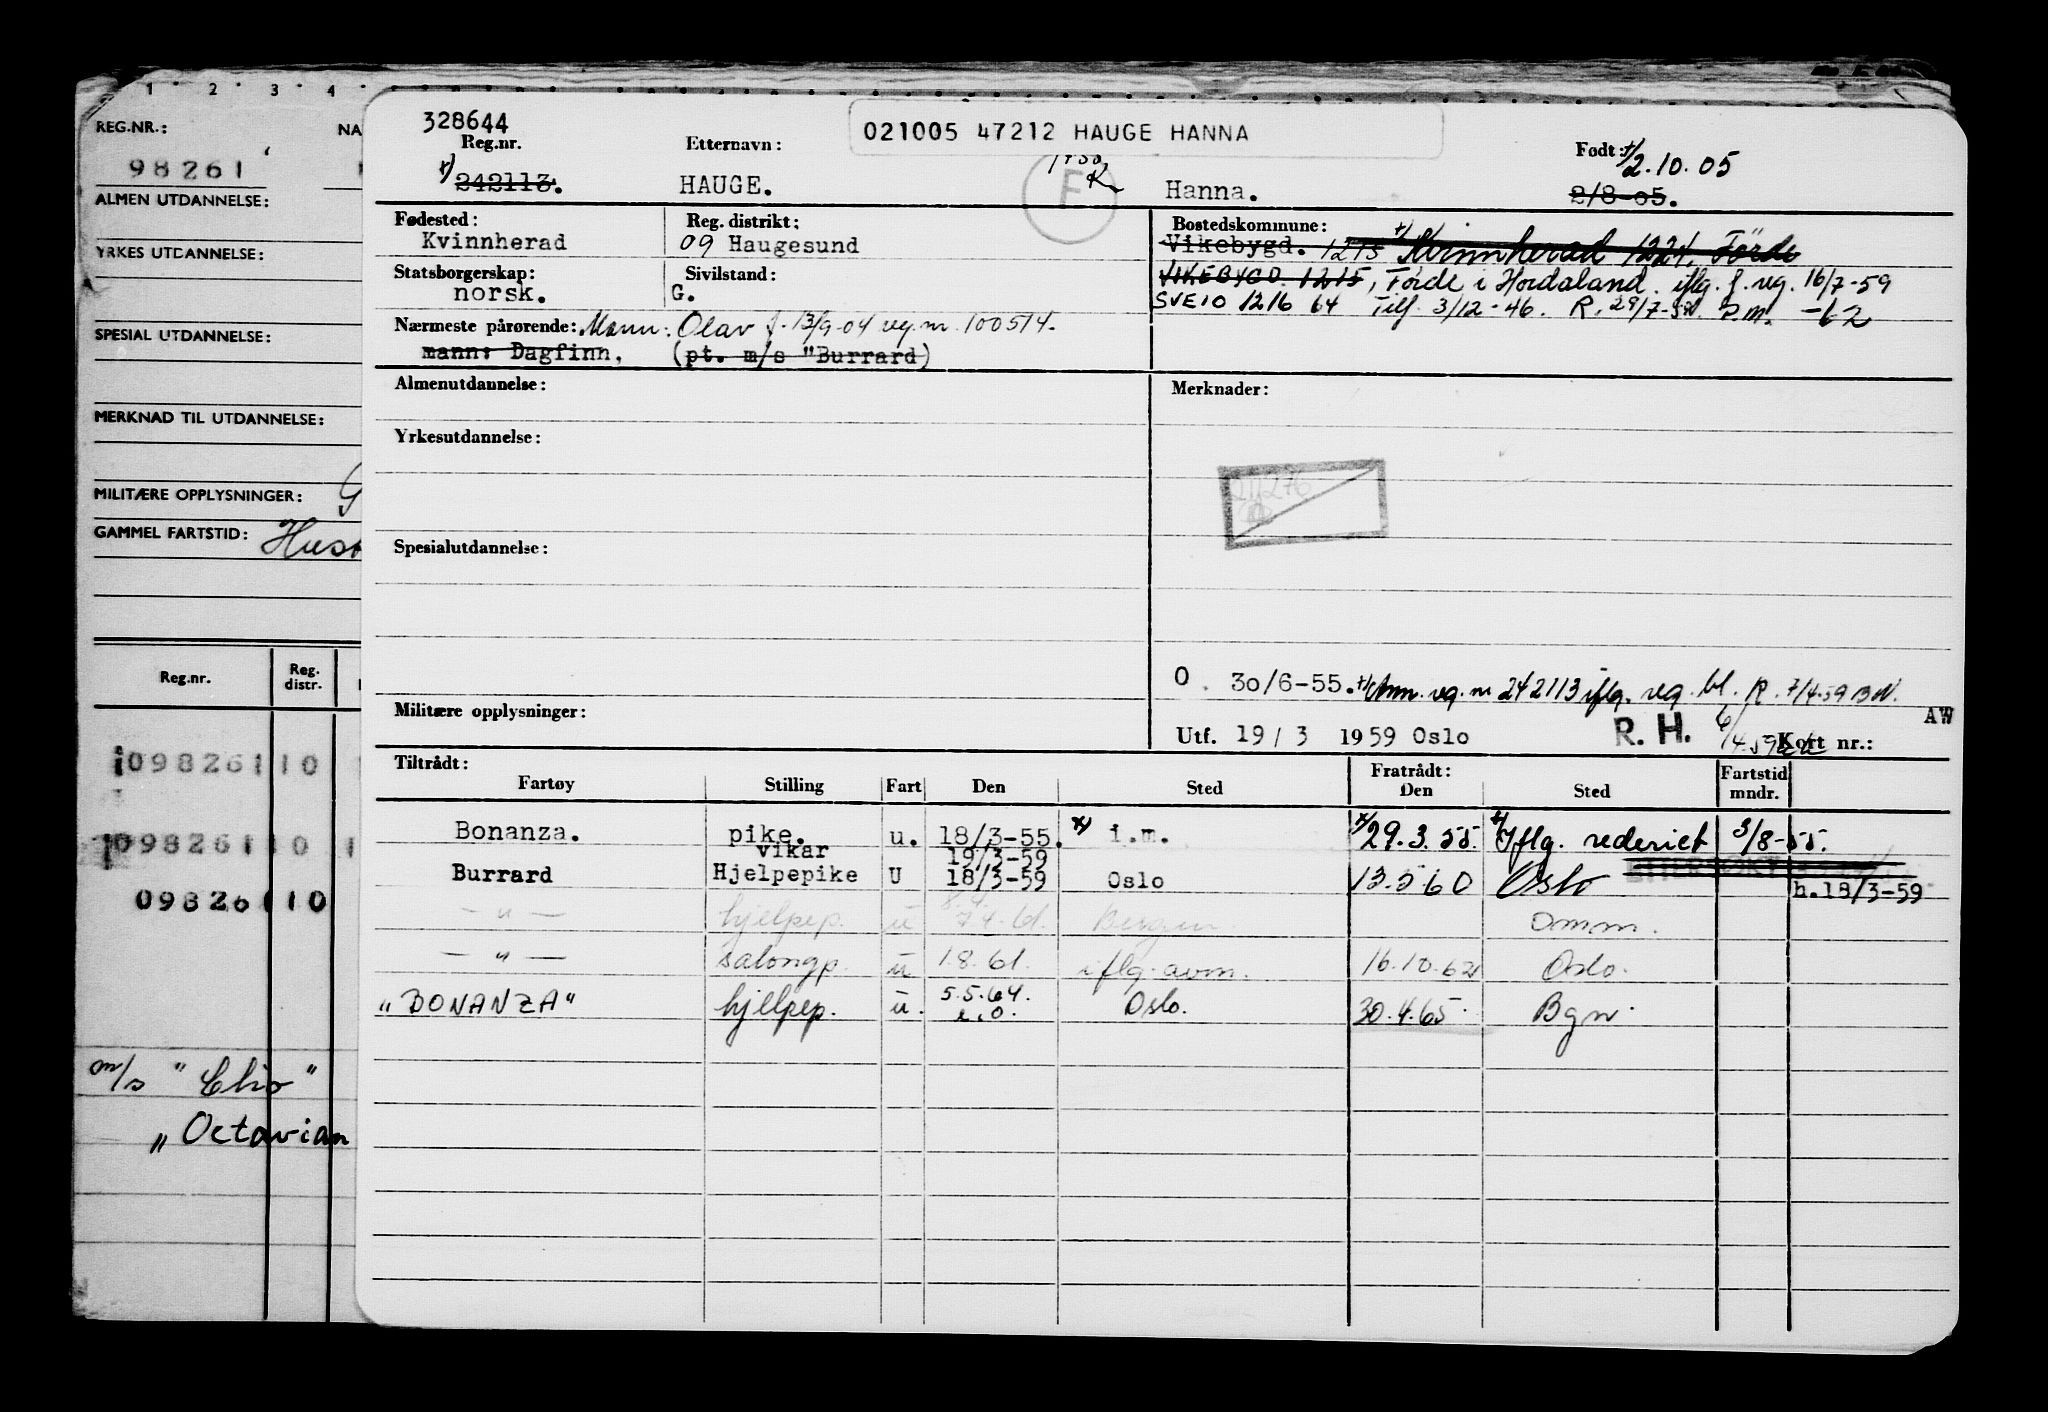 1 2 3 4
REG.NR.: NA
98261
ALMEN UTDANNELSE:
YRKES UTDANNELSE:
SPESIAL UTDANNELSE:
MERKNAD TIL UTDANNELSE:
MILITÆRE OPPLYSNINGER: G
GAMMEL FARTSTID:
Reg.nr. Reg. distr.
09826110
09826110
09826110
m/s "Clio"
" Octavian
328644
021005 47212 HAUGE HANNA
Reg.nr. Etternavn: Født: +/2.10.05
+/242113. HAUGE. F K. Hanna. 2/8-05.
Fødested: Reg. distrikt: Bostedskommune:
Kvinnherad 09 Haugesund Vikebygd. 1215 +/Kvinnherad 1224, Förde
Statsborgerskap: Sivilstand: VIKEBYGD 1215, Førde i Hordaland. iflg. f. reg. 16/7-59
norsk. G. SVEIO 1216 64 Tilf. 3/12-46. R. 29/7-59. P.M. -62
Nærmeste pårørende: Mann: Olav f. 13/9-04 reg.nr. 100514.
mann: Dagfinn, (pt. m/s "Burrard)
Almenutdannelse: Merknader:
Yrkesutdannelse:
Spesialutdannelse:
O. 30/6-55. +/Ann. reg. nr 242113 iflg. reg. bl. R. 7/4.59 BN.
Militære opplysninger: AW
Utf. 19/3 1959 Oslo R. H. 6/4.59 Kort nr.:
Tiltrådt: Fratrådt: Fartstid
Fartøy Stilling Fart Den Sted Den Sted mndr.
Bonanza. pike. u. 18/3-55. x/ i.m. +/29.3.55. +/Iflg. rederiet 3/8-55.
vikar 19/3-59
Burrard Hjelpepike U 18/3-59 Oslo 13.5 60 Oslo h.18/3-59
— " — hjelpep. u 7.4.61. Bergen omm.
— " — salongp. u 1.8.61. iflg. avm. 16.10.62 Oslo.
"BONANZA" hjelpep. u. 5.5.64. Oslo. 30.4.65. Bgn.
e.o.